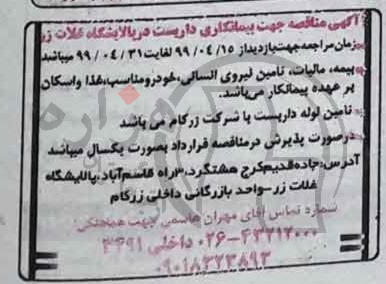 آگهی مناقصه جهت پیمانکاری داربست درپالایشگاه غلات زر
زمان مراجعه جهت بازدید از ۹۹/۰۴/۱۵ لغایت ۹۹/۰۴/۳۱ میباشد
بیمه، مالیات، تامین نیروی انسانی، خودرومناسب، غذا واسکان
بر عهده پیمانکار می‌باشد.
تامین لوله داربست با شرکت زرکام می باشد
درصورت پذیرش درمناقصه قرارداد بصورت یکسال میباشد
آدرس: جاده‌قدیم‌کرج هشتگرد، ۳راه قاسم‌آباد، پالایشگاه
غلات زر-واحد بازرگانی داخلی زرگام
شماره تماس آقای مهران هاشمی جهت هماهنگی
۰۲۶-۴۳۲۱۲۰۰۰ داخلی ۳۴۹۱
۰۹۰۱۸۳۲۳۸۹۳